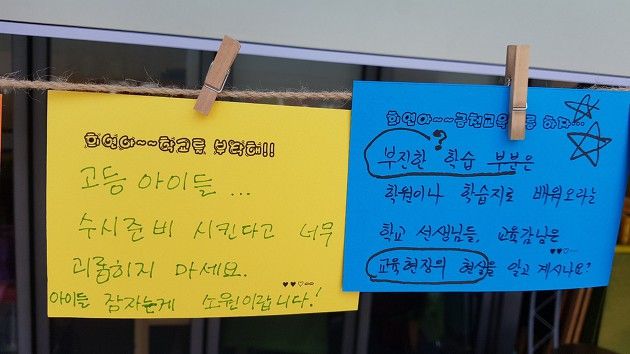 희연아~~학교를 부탁해!!
고등 아이들 ...
수시준비 시킨다고 너무
괴롭히지 마세요.
아이들 잠자는게 소원이랍니다!
희연아~~공천교육 하자~
?
부진한 학습 부분은
학원이나 학습지로 배워오라는
학교 선생님들, 교육감님은
교육현장의 현실을 알고 계시나요?